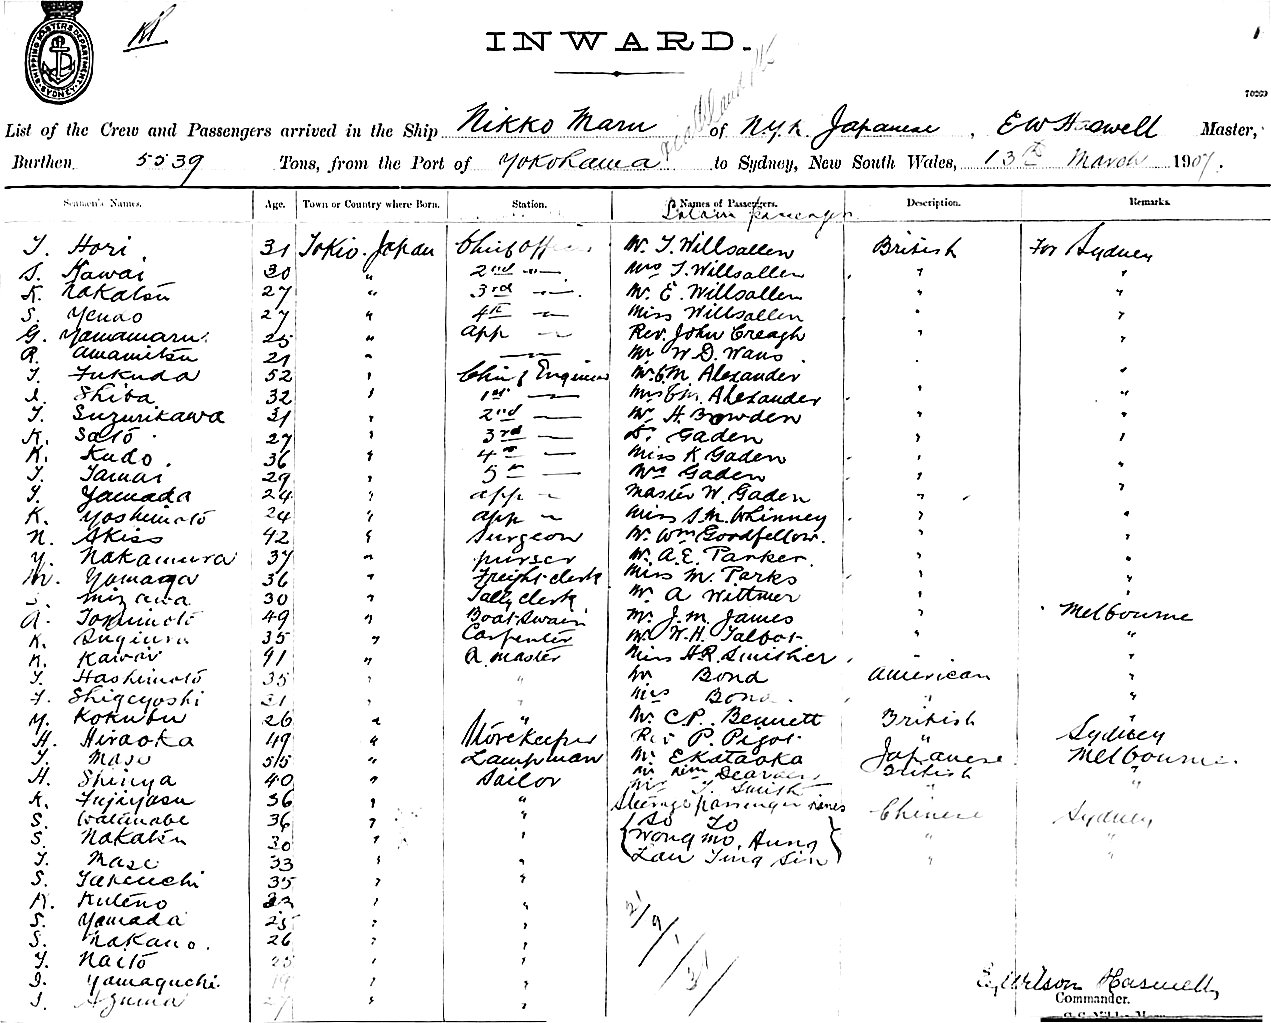 SHIPPING MASTERS DEPARTMENT SYDNEY
INWARD.
70269
List of the Crew and Passengers arrived in the Ship Nikko Maru of N.Y.K. Japanese, E W Haswell Master,
Burthen 5539 Tons, from the Port of Yokohama to Sydney, New South Wales, 13th March 1907.
Seamen's Names. Age. Town or Country where Born. Station. Names of Passengers. Description. Remarks.
Saloon passenger
T. Hori 31 Tokio Japan Chief Offi Mr. T. Willsallen British For Sydney
S. Kawai 30 " 2nd — Mrs T. Willsallen " "
K. Nakatsu 27 " 3rd — Mr. E. Willsallen " "
S. Yenao 27 " 4th — Miss Willsallen " "
G. Yamamaru 25 " app — Rev. John Creagh " "
R. Amamitsu 21 " — Mr W. D. Waus
T. Fukuda 52 " Chief Engineer Mr. C. M. Alexander " "
I. Shiba 32 " 1st — Mrs C. M. Alexander " "
T. Suzurikawa 31 " 2nd — Mr H. Bowden " "
K. Sato 27 " 3rd — Dr Gaden " "
K. Kudo 36 " 4th — Miss K Gaden " "
T. Tamai 29 " 5th — Mrs Gaden " "
T. Yamada 24 " app — Master W. Gaden " "
K. Yoshimoto 24 " app — Miss S. M. Whinney " "
N. Akiss 42 " Surgeon Mr. Wm Goodfellow " "
Y. Nakamura 37 " purser Mr. A. E. Parker " "
M. Yamaga 36 " Freight clerk Miss M. Parks " "
S. Mizawa 30 " Tally clerk Mr A Wittmer " "
A. Tokumoto 49 " Boatswain Mr. J. M. James " Melbourne
K. Sugiura 35 " Carpenter Mr. W. H. Talbot " "
K. Kawai 41 " Q. master Miss H. R. Smither " "
T. Hashimoto 35 " " Mr Bond American "
T. Shigeyoshi 31 " " Mrs Bond " "
Y. Kokubu 26 " " Mr. C. P. Bennett British "
H. Hiraoka 49 " Storekeeper Rev P. Pigot " Sydney
T. Mase 55 " Lampman Mr. E Kataoka Japanese Melbourne
H. Shinya 40 " Sailor Dearden British "
T. Smith "
K. Fujiyasu 36 " " Steerage passenger
S. Watanabe 36 " " So To Chinese Sydney
S. Nakatsu 30 " " Wong Mo, Hung " "
T. Mase 33 " " Lau Ting Sin " "
S. Takeuchi 35 " "
K. Kuteno 32 " "
S. Yamada 25 " "
S. Nakano. 26 " "
T. Naito 25 " "
I. Yamaguchi 19 " "
I. Azuma 27 " "
E. Wilson Haswell
Commander.
S.S. Nikko Maru